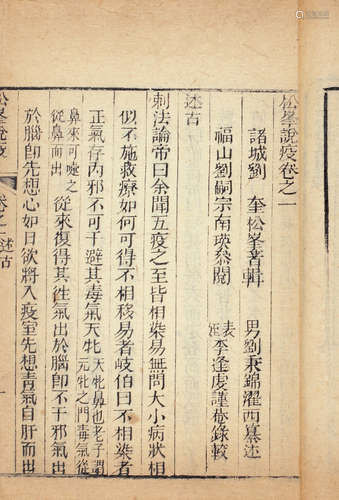 松峯說疫卷之一
諸城劉 奎松峯甫著輯 男劉秉錦濯西纂述
福山劉嗣宗南瑛叅閱 表姪李逢虔謹菴錄較
述古
刺法論帝曰余聞五疫之至皆相染易無問大小病狀相
似不施救療如何可得不相移易者岐伯曰不相染者
正氣存內邪不可干避其毒氣天牝 天牝鼻也老子謂元牝之門毒氣從
鼻來可嚏之從鼻而出 從來復得其往氣出於腦即不干邪氣出
於腦即先想心如日欲將入疫室先想青氣自肝而出
松峯說疫 卷之一 述古